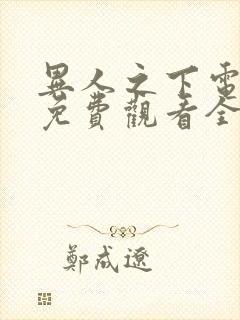 異人之下電
免費觀看全
鄭成遼